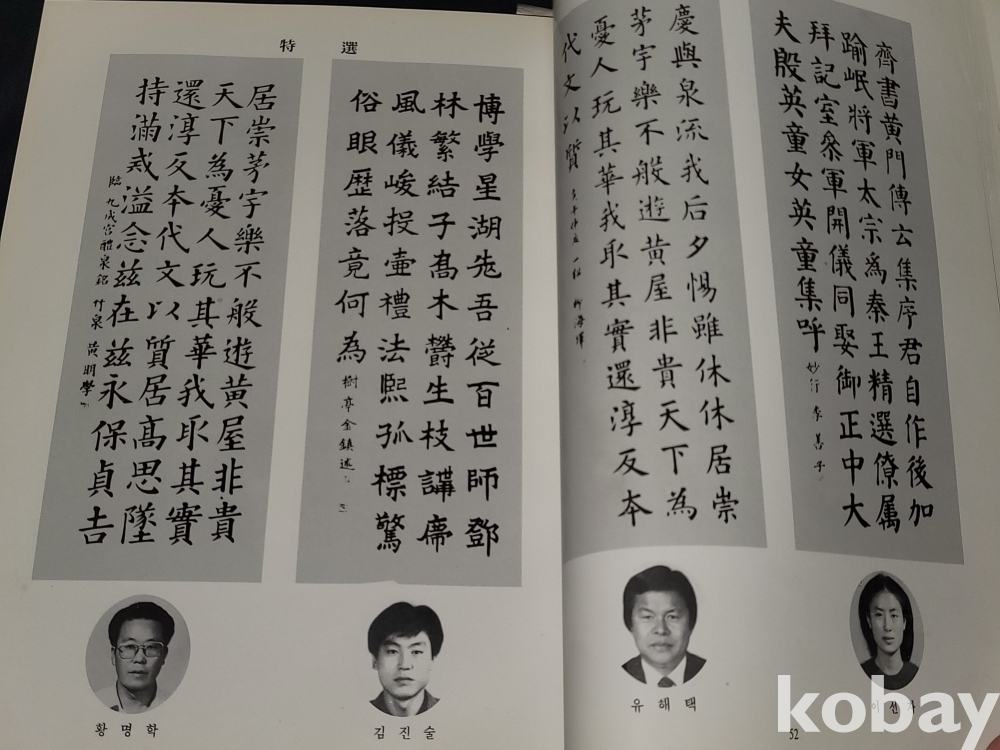 特選
居崇茅宇樂不般遊黃屋非貴
天下為憂人玩其華我取其實
還淳反本代文以質居高思墜
持滿戒溢念茲在茲永保貞吉
臨九成宮醴泉銘 竹泉 黃明學
황명학
博學星湖先吾從百世師鄧
林繁結子高木欝生枝講席
風儀峻投壺禮法熙孤標驚
俗眼歷落竟何為 樹亭金鎮述
김진술
慶與泉流我后夕惕雖休休居崇
茅宇樂不般遊黃屋非貴天下為
憂人玩其華我取其實還淳反本
代文以質
유해택
齊書黃門傳云集序君自作後加
踰岷將軍太宗為秦王精選僚属
拜記室叅軍開儀同娶御正中大
夫殷英童女英童集呼 妙行 李善子
52
kobay